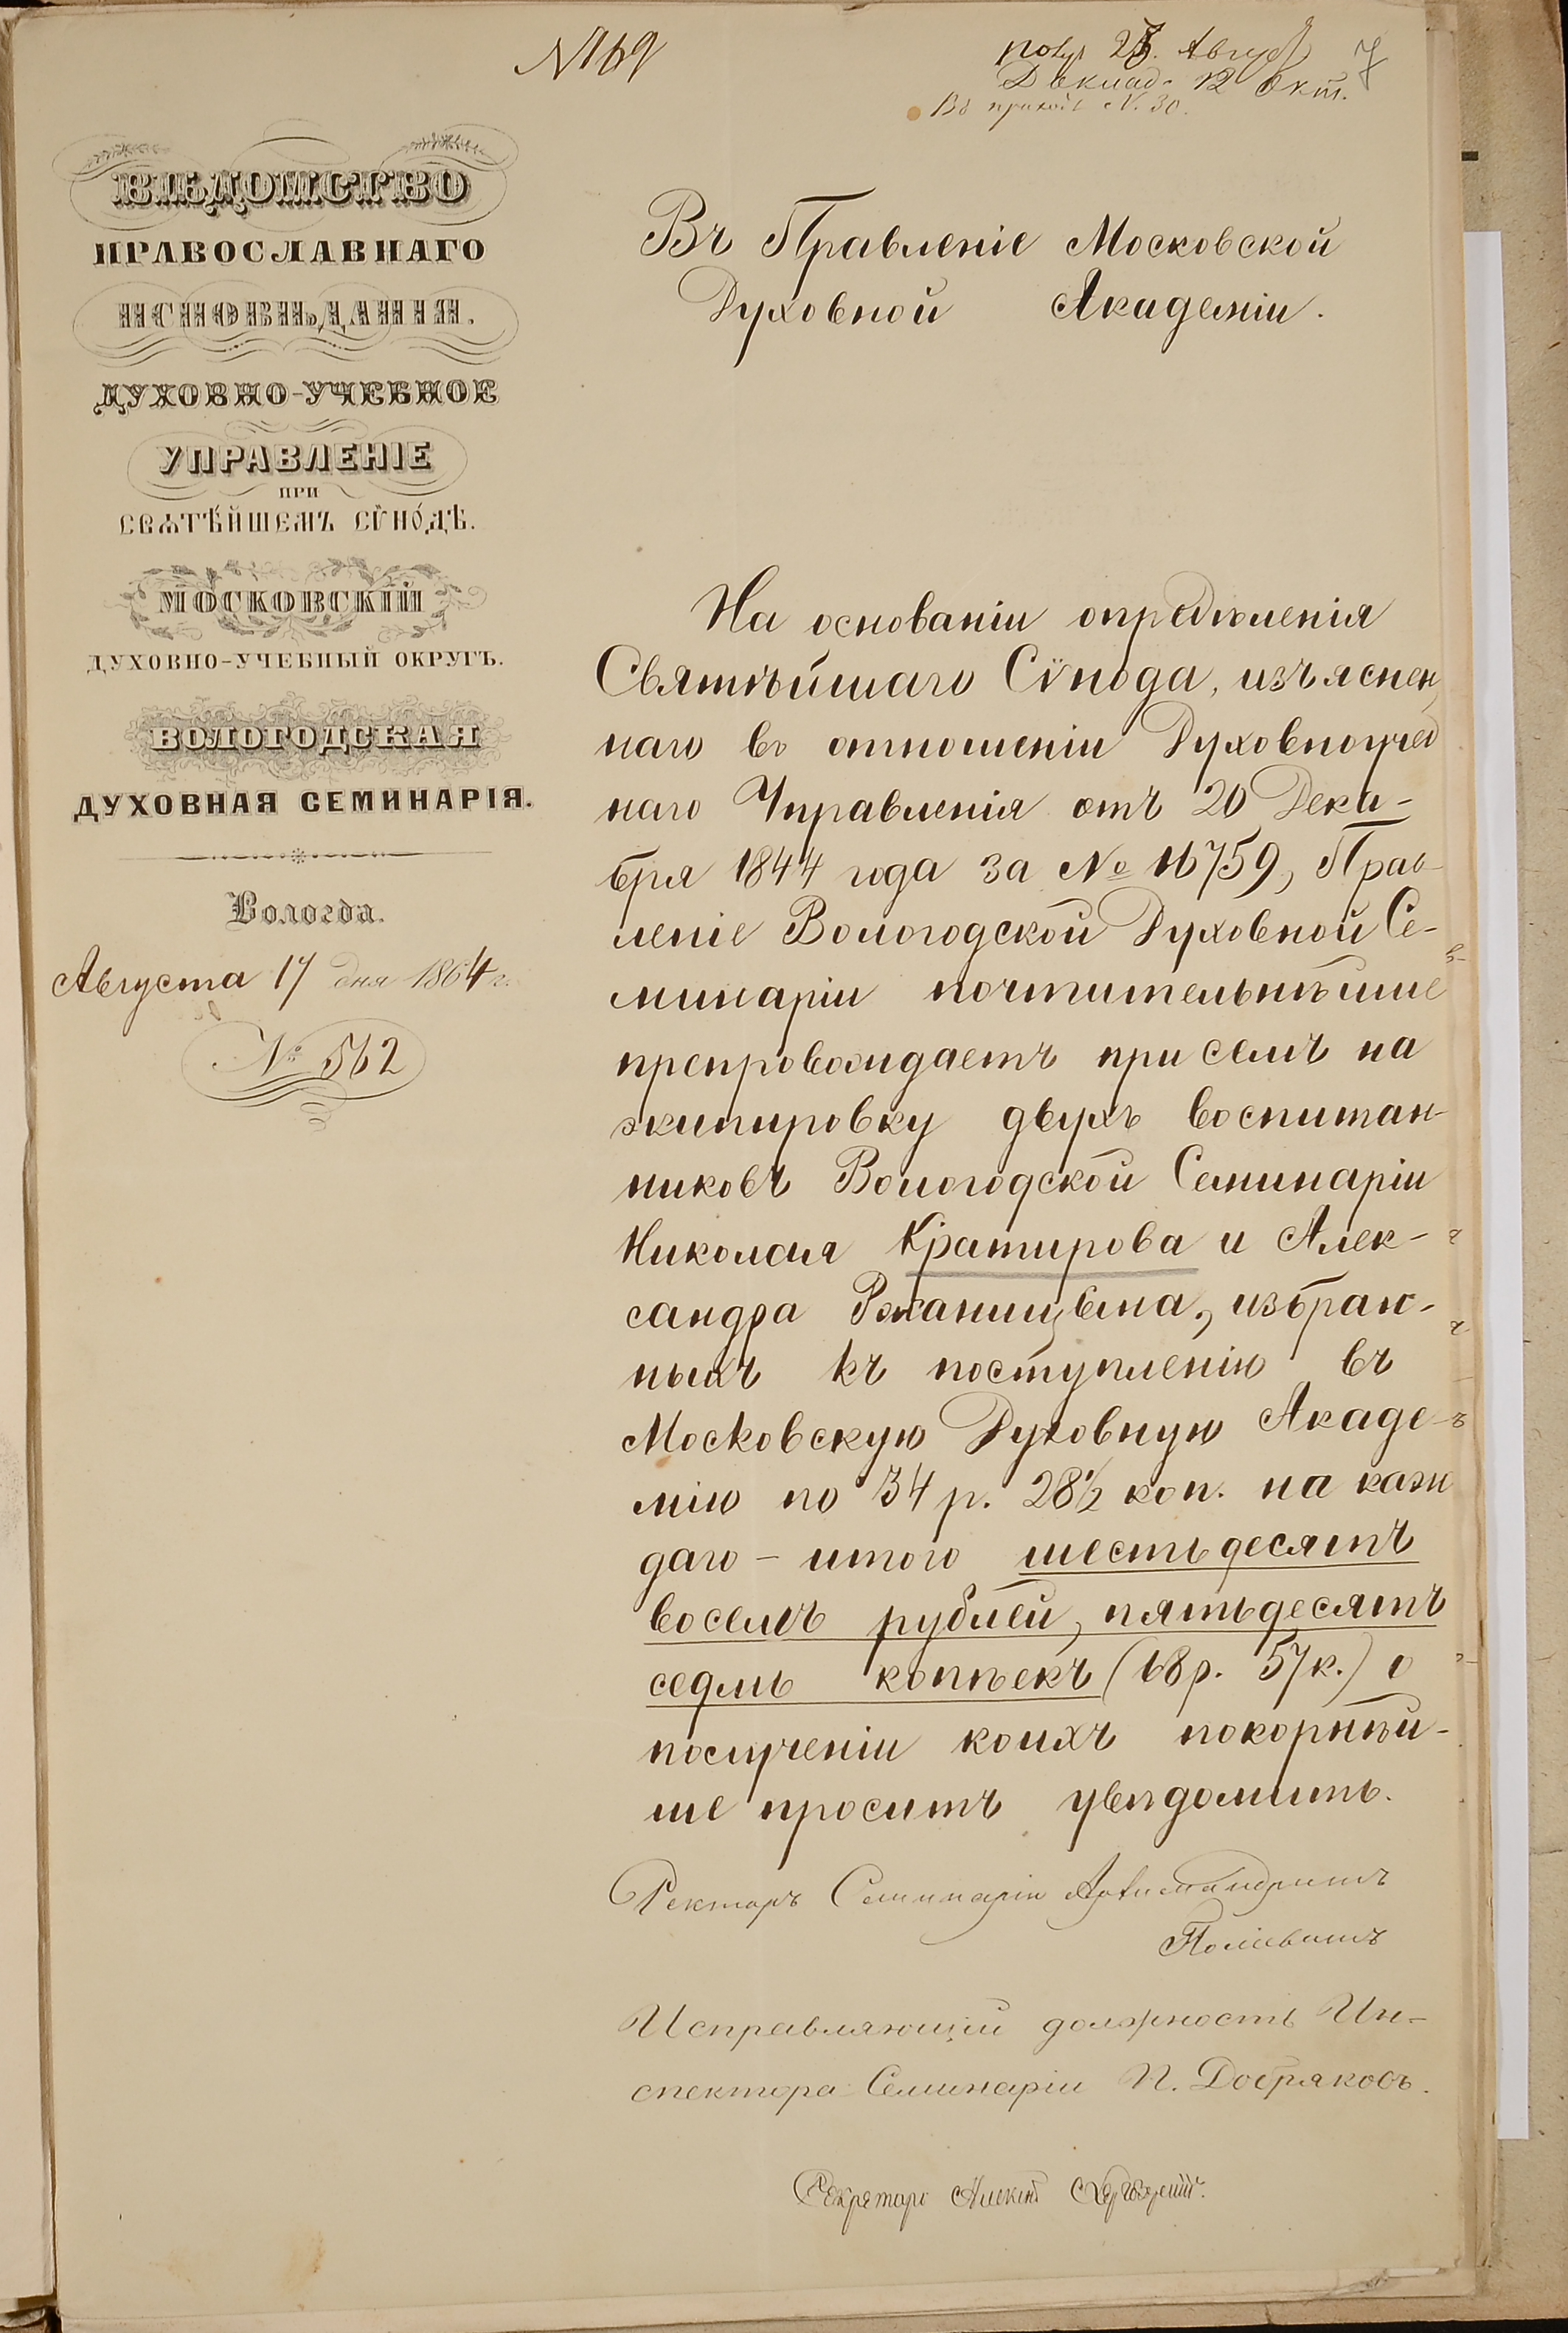 № 169
получ 28. Август 7
Доклад. 12 Окт.
Въ приход № 30.
ВѢДОМСТВО
ПРАВОСЛАВНАГО
ИСПОВѢДАНІЯ.
ДУХОВНО-УЧЕБНОЕ
УПРАВЛЕНІЕ
ПРИ
СВѦТѢЙШЕМЪ СѴНО́ДѢ.
МОСКОВСКІЙ
ДУХОВНО-УЧЕБНЫЙ ОКРУГЪ.
ВОЛОГОДСКАЯ
ДУХОВНАЯ СЕМИНАРІЯ.
Вологда.
Августа 17 дня 1864 г.
№ 562
Въ Правленіе Московской
Духовной Академіи.
На основаніи опредѣленія
Святѣйшаго Сѵнода, изъяснен
наго въ отношеніи Духовноучеб
наго Управленія отъ 20 Дека-
бря 1844 года за № 16759, Прав-
леніе Вологодской Духовной Се-
минаріи почтительнѣйше
препровождаетъ при семъ на
экипировку двухъ воспитан-
никовъ Вологодской Семинаріи
Николая Кратирова и Алек-
сандра Ржаницына, избран-
ныхъ къ поступленію въ
Московскую Духовную Акаде-
мію по 34 р. 28½ коп. на каж
даго – итого шестьдесятъ
восемь рублей, пятьдесятъ
седмь копѣекъ (68 р. 57 к.) о
полученіи коихъ покорнѣй-
ше проситъ увѣдомить.
Ректоръ Семинаріи Архимандритъ
Исправляющій должность Ин-
спектора Семинаріи П. Добряковъ.
Секретарь